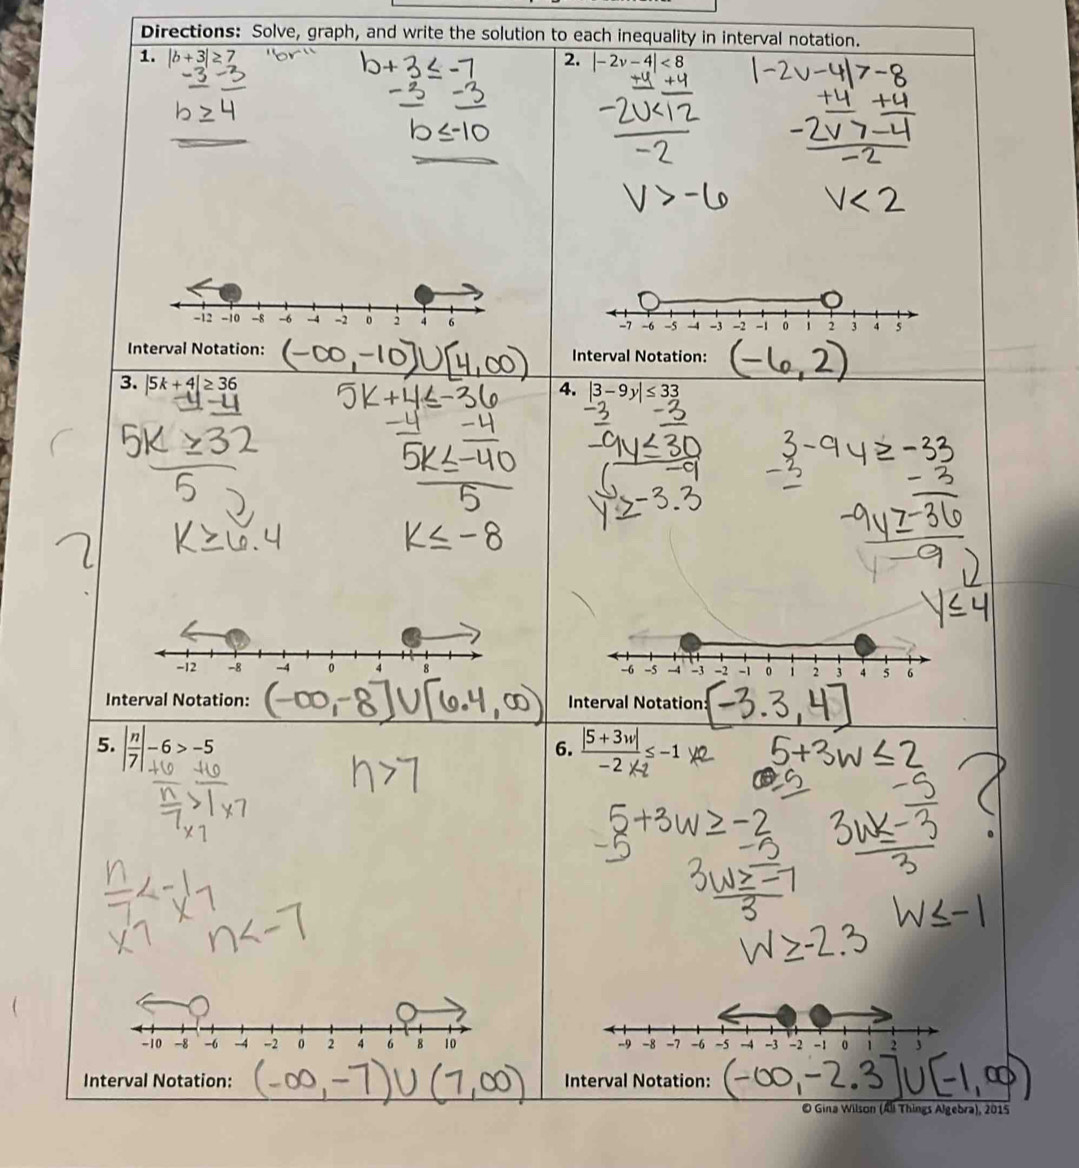 Directions: Solve, graph, and write the solution to each inequality in interval notation.
1. |b+3| ≥ 7 "or"
-3 -3
b ≥ 4
b+3 ≤ -7
-3 -3
b ≤ -10
-12 -10 -8 -6 -4 -2 0 2 4 6
Interval Notation: (-∞,-10]∪[4,∞)
2. |-2v-4| < 8
+4 +4
-2v<12
-2
v > -6
|-2v-4|>-8
+4 +4
-2v>-4
-2
v<2
-7 -6 -5 -4 -3 -2 -1 0 1 2 3 4 5
Interval Notation: (-6,2)
3. |5k+4| ≥ 36
-4 -4
5k ≥ 32
5
k ≥ 6.4
5k+4 ≤ -36
-4 -4
5k ≤ -40
5
k ≤ -8
?
-12 -8 -4 0 4 8
Interval Notation: (-∞,-8]∪[6.4,∞)
4. |3-9y| ≤ 33
-3 -3
-9y ≤ 30
-9
y ≥ -3.3
3-9y ≥ -33
-3 -3
-9y ≥ -36
-9
y ≤ 4
-6 -5 -4 -3 -2 -1 0 1 2 3 4 5 6
Interval Notation: [-3.3,4]
5. |n/7| -6 > -5
+6 +6
n/7 > 1 x7
x7
n>7
n/7 < -1 x7
x7
n<-7
-10 -8 -6 -4 -2 0 2 4 6 8 10
Interval Notation: (-∞,-7)∪(7,∞)
6. |5+3w|/-2 ≤ -1 x-2
x-2
5+3w ≥ -2
-5 -5
3w ≥ -7
3
w ≥ -2.3
5+3w ≤ 2
-5 -5
3w ≤ -3
3
w ≤ -1
?
-9 -8 -7 -6 -5 -4 -3 -2 -1 0 1 2 3
Interval Notation: (-∞,-2.3]∪[-1,∞)
© Gina Wilson (All Things Algebra), 2015